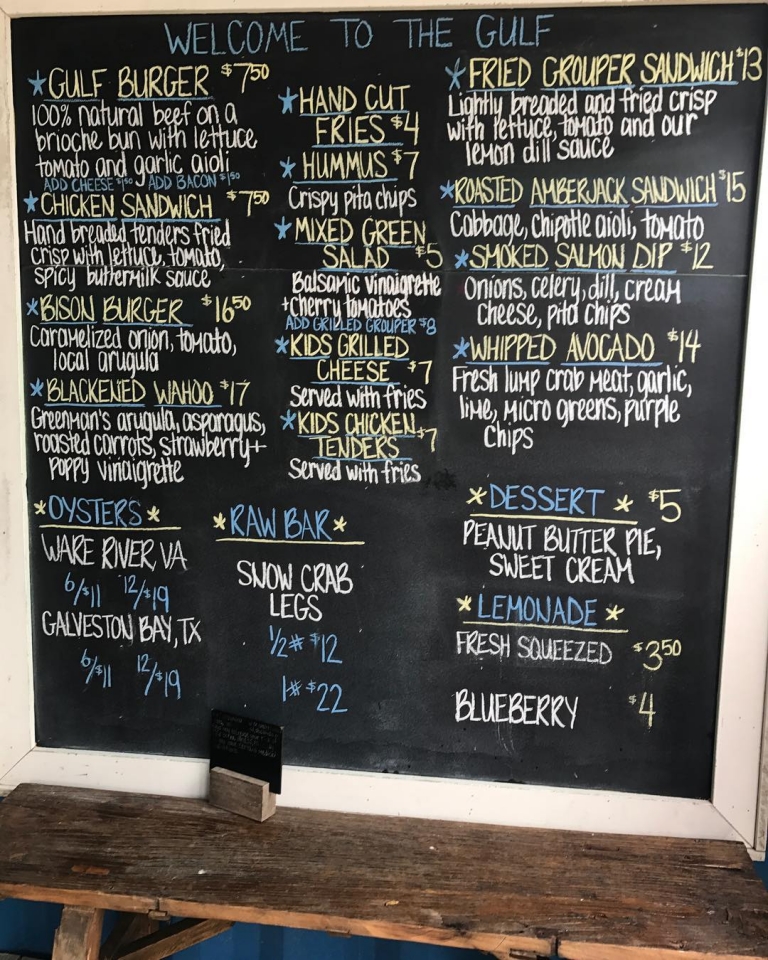 WELCOME TO THE GULF
★GULF BURGER $7.50
100% natural beef on a
brioche bun with lettuce,
tomato and garlic aioli
ADD CHEESE $1.50 ADD BACON $1.50
★CHICKEN SANDWICH $7.50
Hand breaded tenders fried
crisp with lettuce, tomato,
spicy buttermilk sauce
★BISON BURGER $16.50
Caramelized onion, tomato,
local arugula
★BLACKENED WAHOO $17
Greenman's arugula, asparagus,
roasted carrots, strawberry+
poppy vinaigrette
★HAND CUT
FRIES $4
★HUMMUS $7
Crispy pita chips
★MIXED GREEN
SALAD $5
Balsamic vinaigrette
+cherry tomatoes
ADD GRILLED GROUPER $8
★KIDS GRILLED
CHEESE $7
Served with fries
★KIDS CHICKEN
TENDERS $7
Served with fries
★FRIED GROUPER SANDWICH $13
Lightly breaded and fried crisp
with lettuce, tomato and our
lemon dill sauce
★ROASTED AMBERJACK SANDWICH $15
Cabbage, chipotle aioli, tomato
★SMOKED SALMON DIP $12
Onions, celery, dill, cream
cheese, pita chips
★WHIPPED AVOCADO $14
Fresh lump crab meat, garlic,
lime, micro greens, purple
chips
★OYSTERS★
WARE RIVER, VA
6/$11 12/$19
GALVESTON BAY, TX
6/$11 12/$19
★RAW BAR★
SNOW CRAB
LEGS
1/2# $12
1# $22
★DESSERT★ $5
PEANUT BUTTER PIE,
SWEET CREAM
★LEMONADE★
FRESH SQUEEZED $3.50
BLUEBERRY $4